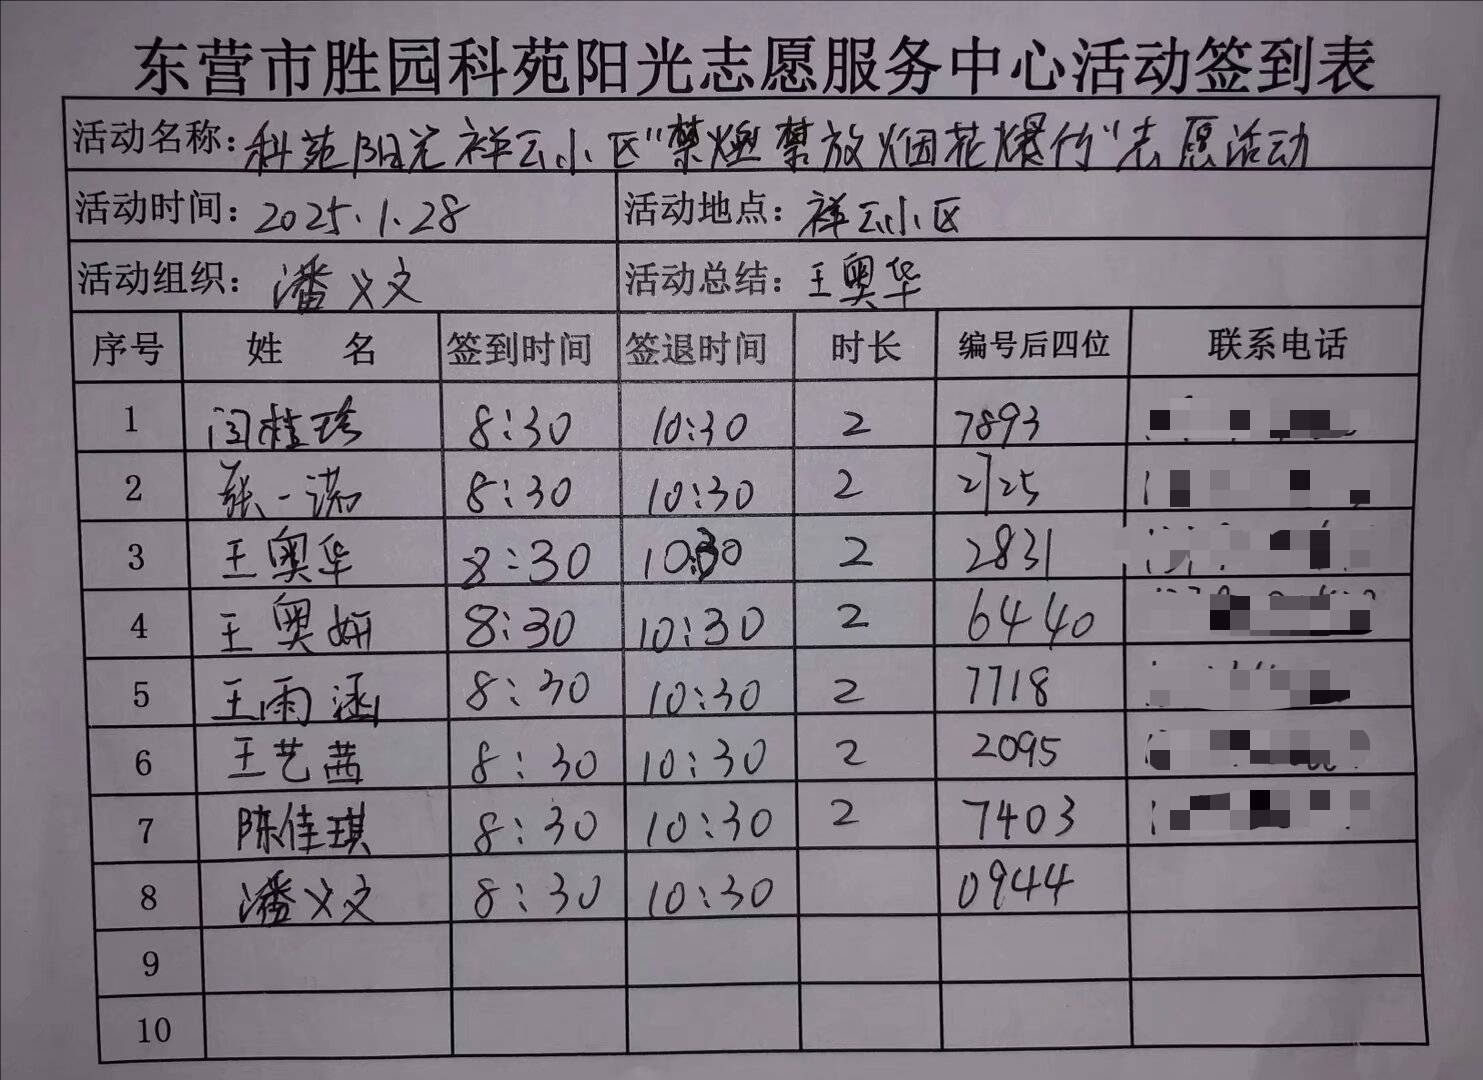 东营市胜园科苑阳光志愿服务中心活动签到表
活动名称:科苑阳光祥云小区“禁燃禁放烟花爆竹”志愿活动
活动时间:2025.1.28 活动地点:祥云小区
活动组织:潘义文 活动总结:王奥华
序号 姓 名 签到时间 签退时间 时长 编号后四位 联系电话
1 闫桂珍 8:30 10:30 2 7893
2 张一诺 8:30 10:30 2 2725
3 王奥华 8:30 10:30 2 2831
4 王奥妍 8:30 10:30 2 6440
5 王雨涵 8:30 10:30 2 7718
6 王艺茜 8:30 10:30 2 2095
7 陈佳琪 8:30 10:30 2 7403
8 潘义文 8:30 10:30 0944
9
10